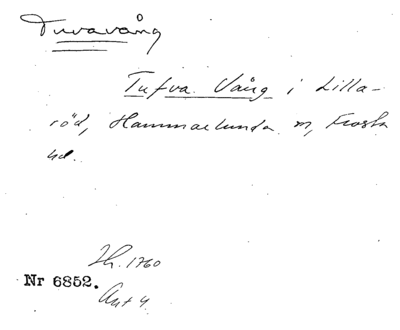 Tuvavång
Tufva Vång i Lilla-
röd, Hammarlunda m, Frosta
hd.
Lh. 1760
Nr 6852.
Akt 4